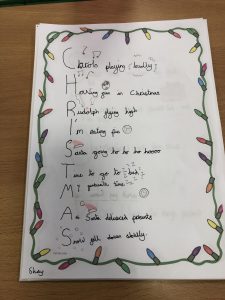 Carols playing loudly
Having fun in Christmas
Rudolph flying high
I'm eating pie
Santa going ho ho ho hoooo
Time to go to bed
I patiently time
As Santa delivered presents
Snow fell down slowly.
Shay